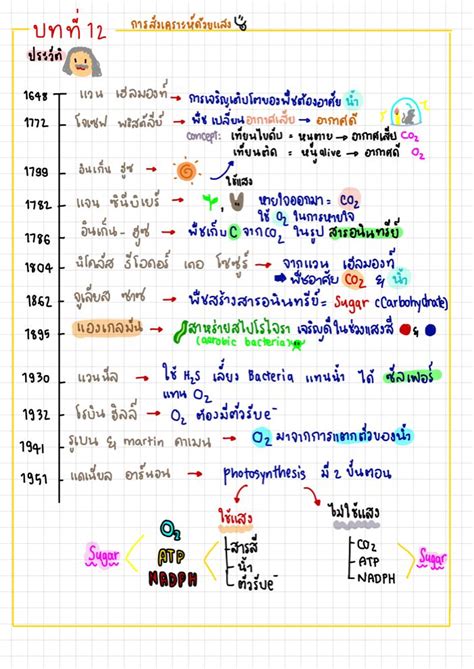 บทที่ 12 การสังเคราะห์ด้วยแสง
ประวัติ
1648 แวน เฮลมองท์ → การเจริญเติบโตของพืชต้องอาศัย น้ำ
1772 โจเซฟ พริสต์ลีย์ → พืช เปลี่ยนอากาศเสีย → อากาศดี
concept: เทียนไขดับ = หนูตาย → อากาศเสีย CO2
เทียนติด = หนูalive → อากาศดี O2
1799 อินเก็น ฮูซ → ใช้แสง
1782 แจน ซีนีบิเยร์ → , หายใจออกมา = CO2
ใช้ O2 ในการหายใจ
1786 อินเก็น-ฮูซ → พืชเก็บ C จากCO2 ในรูป สารอนินทรีย์
1804 นิโคลัส ธีโอดอร์ เดอ โซซูร์ → จากแวน เฮลมองท์
→ พืชอาศัย CO2 & น้ำ
1862 จูเลียส ซาซ → พืชสร้างสารอนินทรีย์ = Sugar (Carbohydrate)
1895 แองเกลมัน → สาหร่ายสไปโรไจรา เจริญดีในช่วงแสงสี &
(aerobic bacteria)
1930 แวนนีล → ใช้ H2S เลี้ยง Bacteria แทนน้ำ ได้ ซัลเฟอร์
แทน O2
1932 โรบิน ฮิลล์ → O2 ต้องมีตัวรับe-
1941 รูเบน & martin คาเมน → O2 มาจากการแตกตัวของน้ำ
1951 แดเนียล อาร์นอน → photosynthesis มี 2 ขั้นตอน
ใช้แสง ไม่ใช้แสง
Sugar O2 ATP NADPH
สารสี
น้ำ
ตัวรับe-
CO2
ATP
NADPH
Sugar